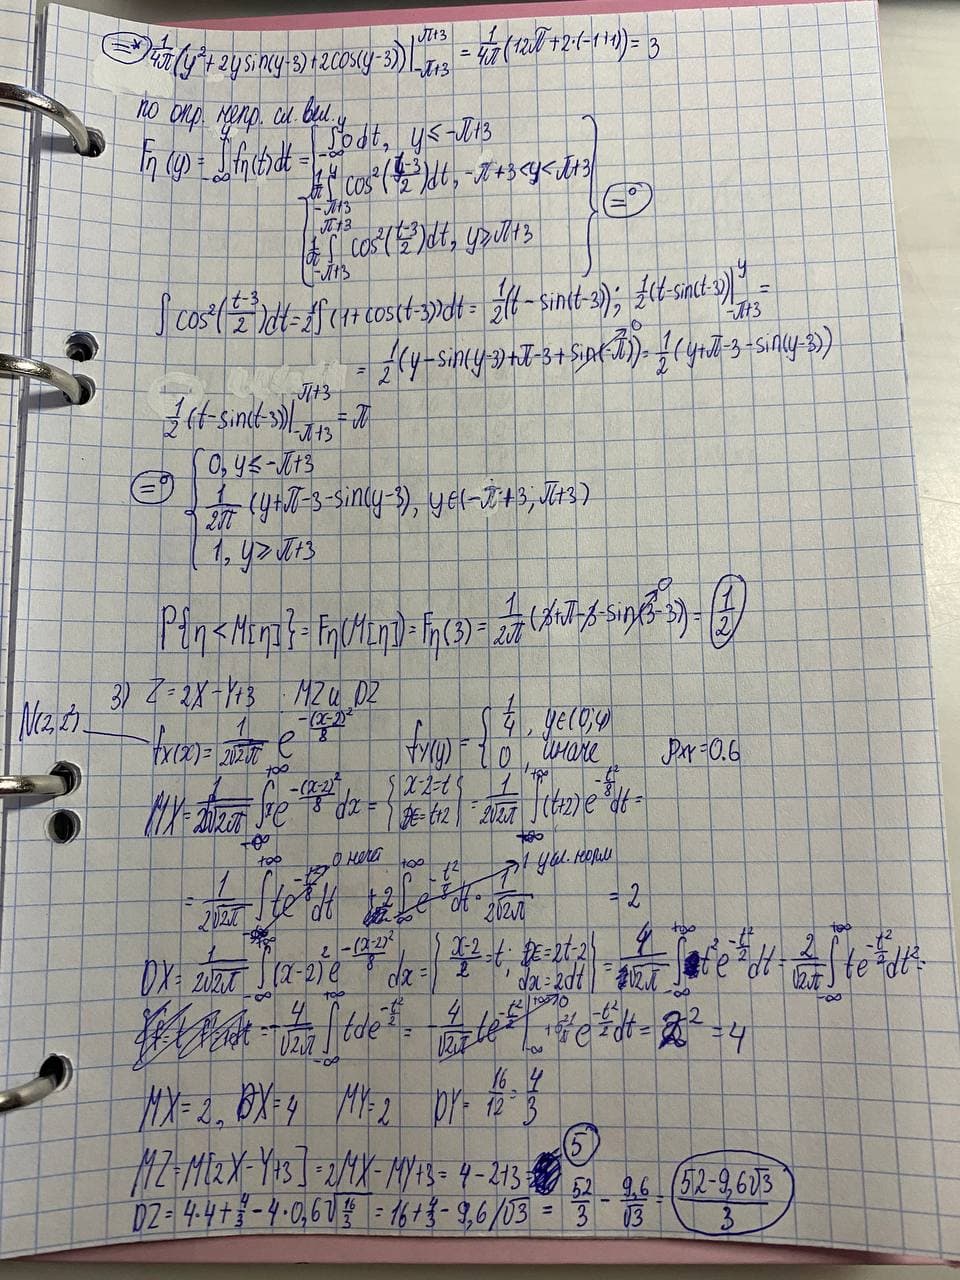 =* 1/4π (y²+2ysin(y-3)+2cos(y-3))|_{-π+3}^{π+3} = 1/4π (12π+2·(-1+1)) = 3
по опр. непр. сл. вел.
Fη(y) = ∫_{-∞}^{y} fη(t)dt = { ∫_{-∞}^{y} 0dt, y ≤ -π+3
1/π ∫_{-π+3}^{y} cos²(t-3/2)dt, -π+3<y<π+3
1/π ∫_{-π+3}^{π+3} cos²(t-3/2)dt, y ≥ π+3 } =°
∫cos²(t-3/2)dt = 1/2 ∫(1+cos(t-3))dt = 1/2(t-sin(t-3)); 1/2(t-sin(t-3))|_{-π+3}^{y} =
= 1/2(y-sin(y-3)+π-3+sin(-π)) = 1/2(y+π-3-sin(y-3))
1/2(t-sin(t-3))|_{-π+3}^{π+3} = π
=° { 0, y ≤ -π+3
1/2π (y+π-3-sin(y-3), y∈(-π+3; π+3)
1, y ≥ π+3
P{η < M[η]} = Fη(M[η]) = Fη(3) = 1/2π (3+π-3-sin(3-3)) = 1/2
3) Z = 2X-Y+3 MZ и DZ
N(2,2²) fx(x) = 1/2√2π e^{-(x-2)²/8} fy(y) = { 1/4, y∈(0;4)
0, иначе ρxy = 0.6
MX = 1/2√2π ∫_{-∞}^{+∞} xe^{-(x-2)²/8} dx = { x-2=t x=t+2 } = 1/2√2π ∫_{-∞}^{+∞} (t+2)e^{-t²/8} dt =
= 1/2√2π ∫_{-∞}^{+∞} te^{-t²/8} dt 0 неч + 2 ∫_{-∞}^{+∞} e^{-t²/8} dt · 1/2√2π 1 усл. норм = 2
DX = 1/2√2π ∫_{-∞}^{+∞} (x-2)² e^{-(x-2)²/8} dx = { x-2/2 = t; x=2t-2 dx=2dt } = 4/√2π ∫_{-∞}^{+∞} t²e^{-t²/2} dt = 2/√2π ∫_{-∞}^{+∞} te^{-t²/2} dt² =
= -4/√2π ∫_{-∞}^{+∞} tde^{-t²/2} = -4/√2π te^{-t²/2} |_{-∞}^{+∞} 0 + e^{-t²/2} dt = 2² = 4
MX = 2, DX = 4 MY = 2 DY = 16/12 = 4/3
MZ = M[2X-Y+3] = 2MX-MY+3 = 4-2+3 = 5
DZ = 4·4+4/3-4·0,6√16/3 = 16+4/3-9,6/√3 = 52/3 - 9,6/√3 = 52-9,6√3/3